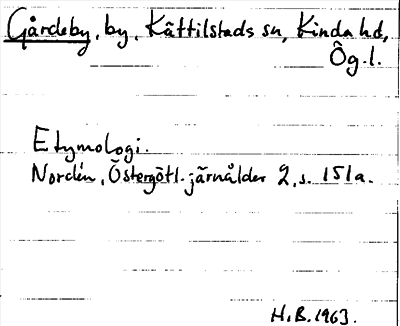 Gårdeby, by, Kättilstads sn, Kinda hd,
Ög.l.
Etymologi.
Nordén, Östergötl. järnålder 2, s. 151a.
H.B. 1963.